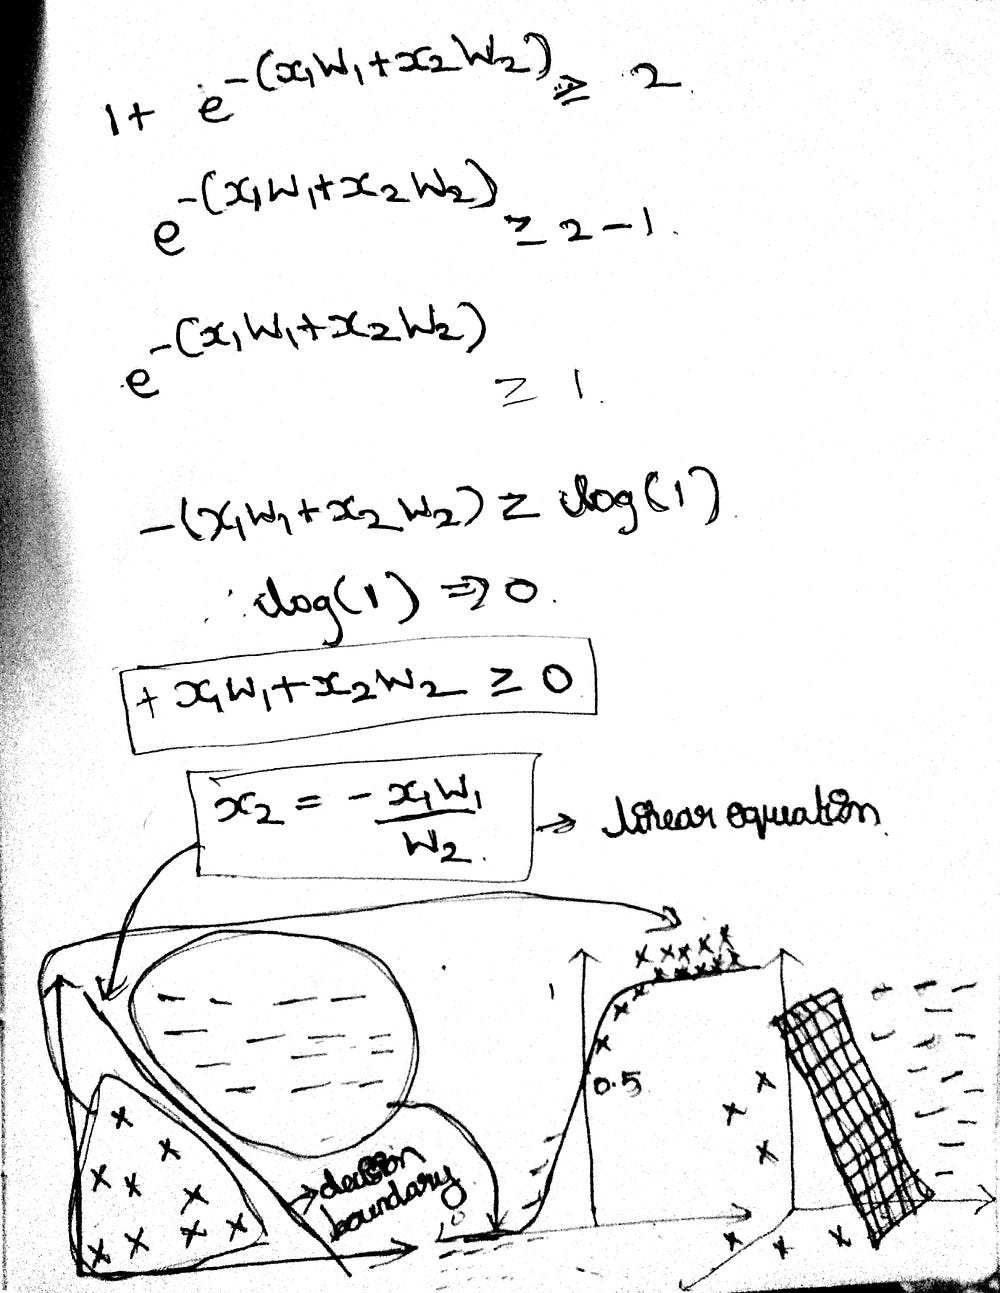 1 + e^-(x₁W₁+x₂W₂) ≥ 2
e^-(x₁W₁+x₂W₂) ≥ 2-1.
e^-(x₁W₁+x₂W₂) ≥ 1.
-(x₁W₁+x₂W₂) ≥ log(1)
∴ log(1) ⇒ 0.
+ x₁W₁+x₂W₂ ≥ 0
x₂ = - x₁W₁ / W₂. → linear equation.
1
0.5
→ decision
boundary
0